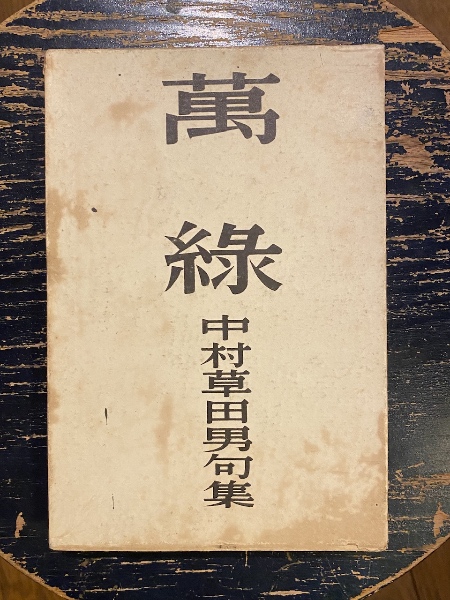 萬緑
中村草田男句集